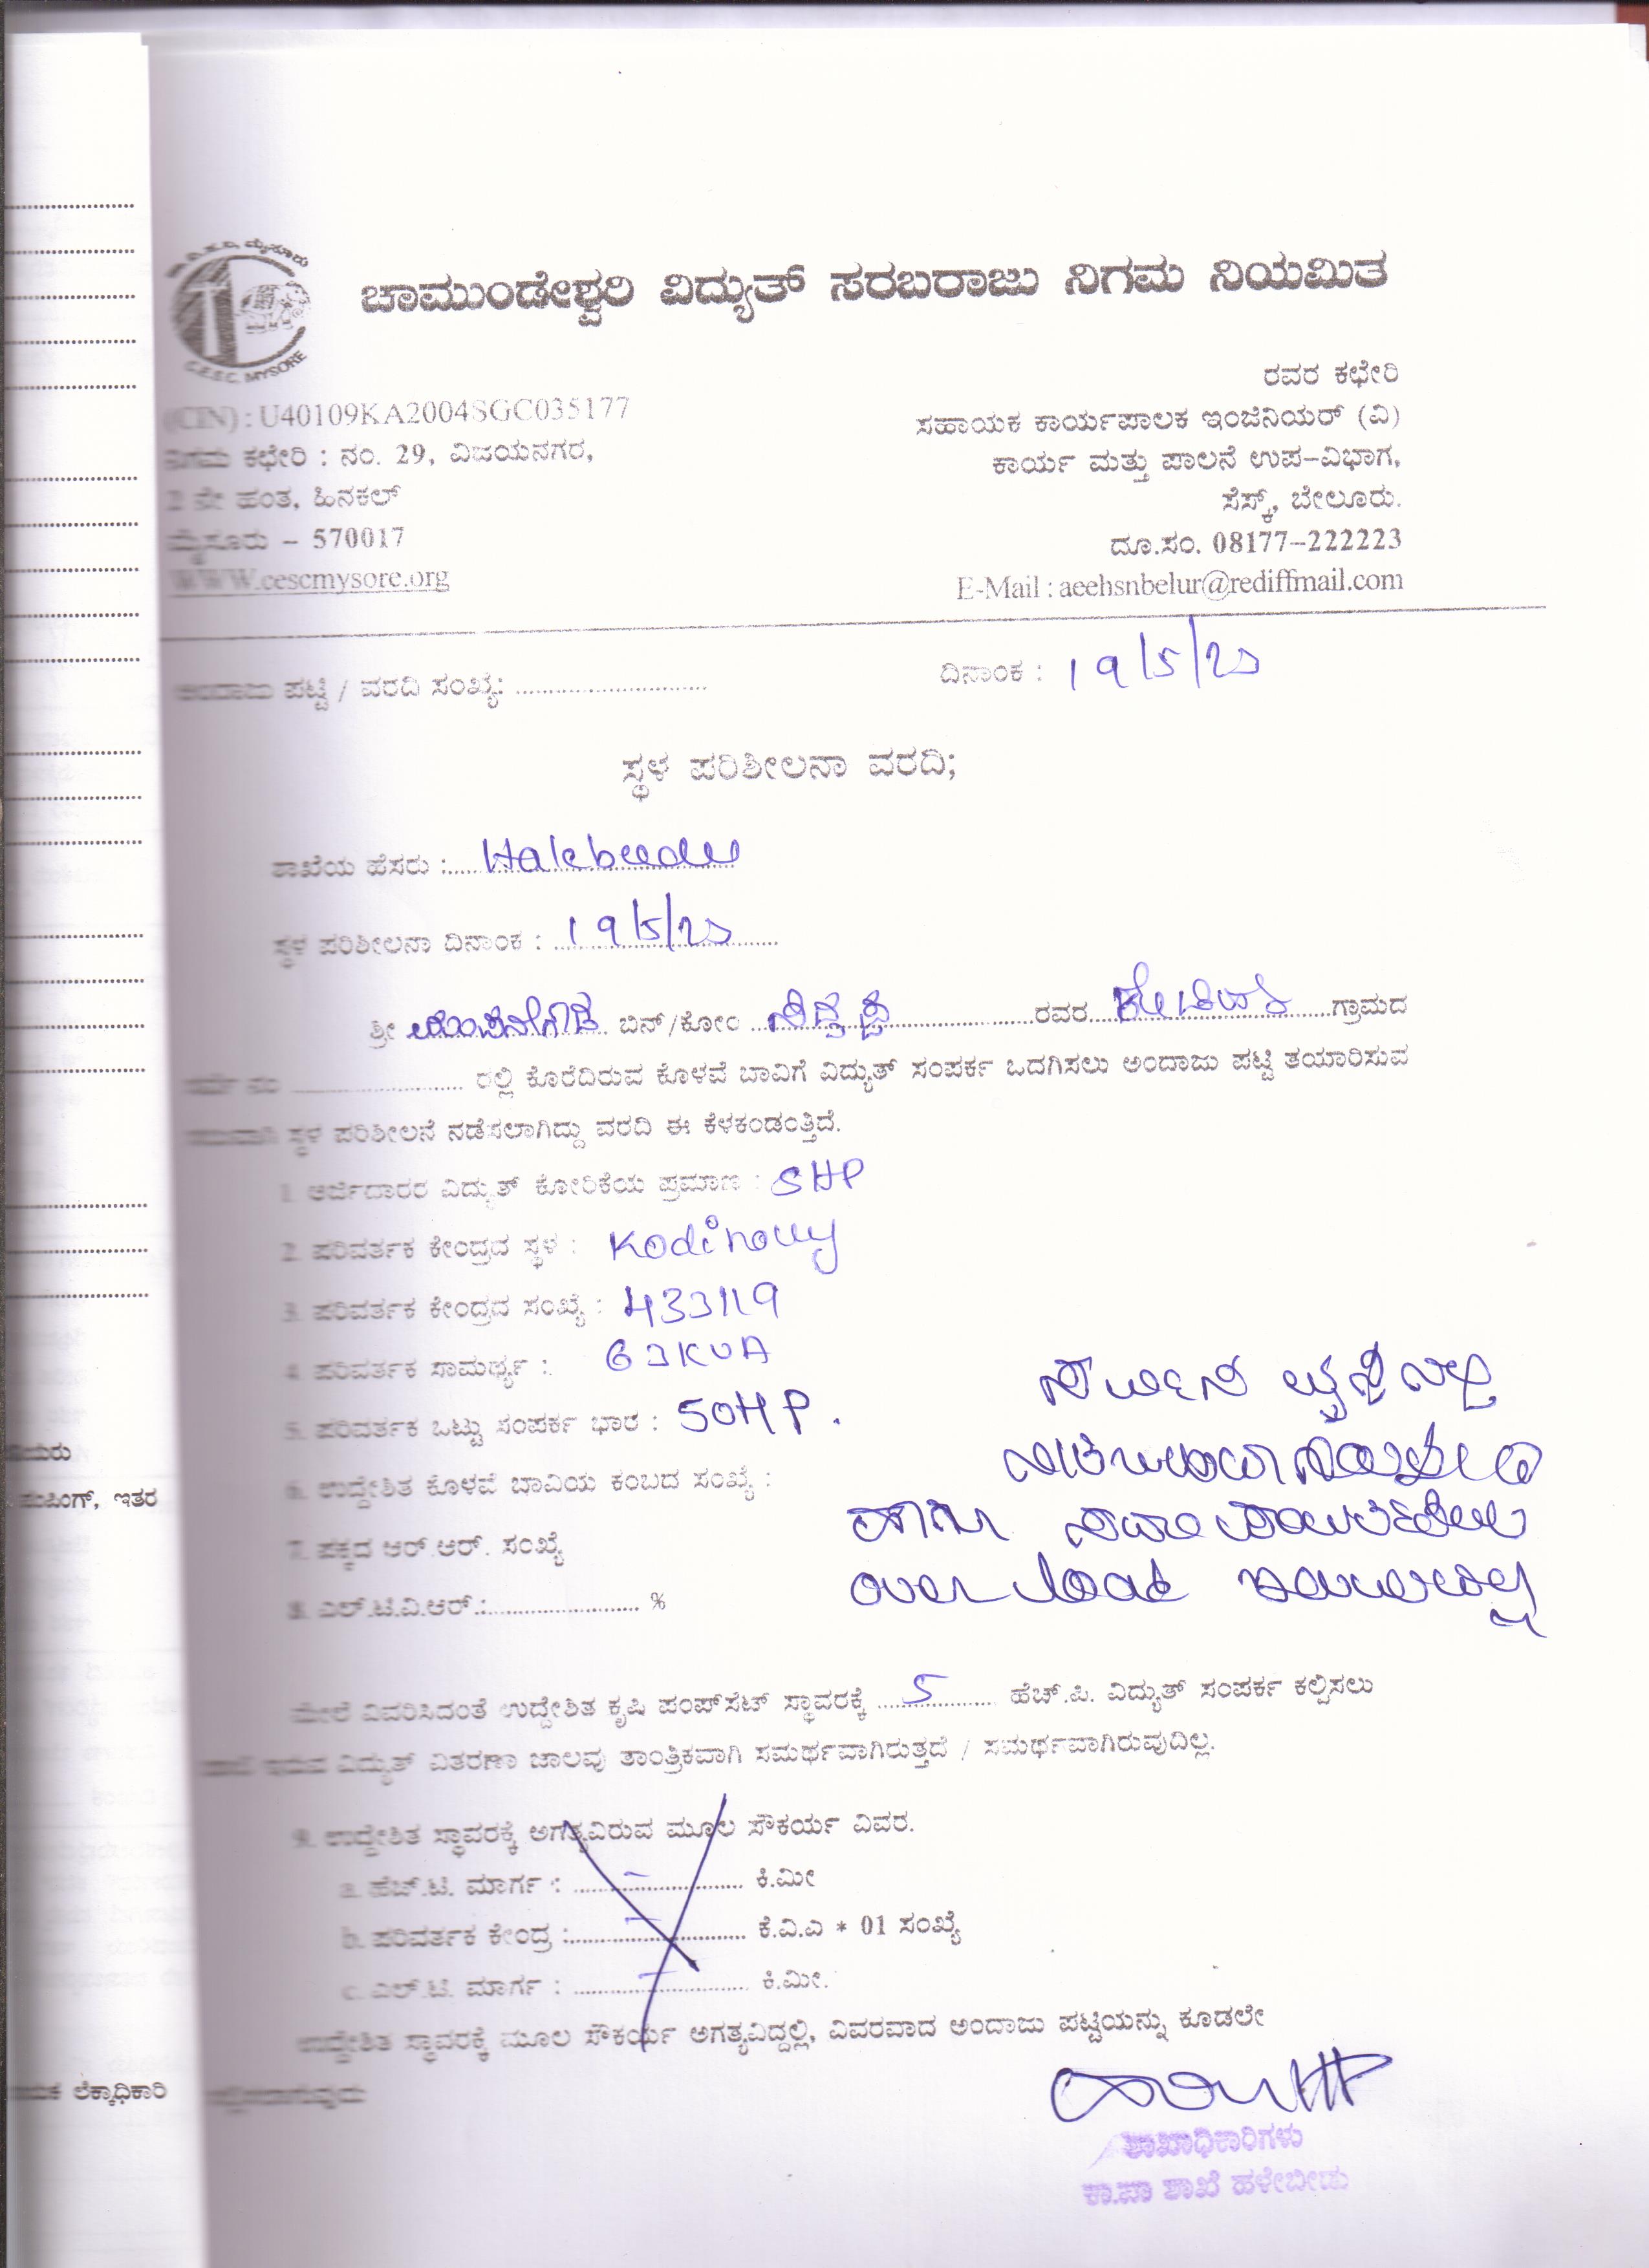 ಚಾಮುಂಡೇಶ್ವರಿ ವಿದ್ಯುತ್ ಸರಬರಾಜು ನಿಗಮ ನಿಯಮಿತ
C.E.S.C. MYSORE
ರವರ ಕಛೇರಿ
(CIN) : U40109KA2004SGC035177
ಸಹಾಯಕ ಕಾರ್ಯಪಾಲಕ ಇಂಜಿನಿಯರ್ (ವಿ)
ನಿಗಮ ಕಛೇರಿ : ನಂ. 29, ವಿಜಯನಗರ,
ಕಾರ್ಯ ಮತ್ತು ಪಾಲನೆ ಉಪ-ವಿಭಾಗ,
2 ನೇ ಹಂತ, ಹಿನಕಲ್
ಸೆಸ್ಕ್, ಬೇಲೂರು.
ಮೈಸೂರು - 570017
ದೂ.ಸಂ. 08177-222223
WWW.cescmysore.org
E-Mail : aeehsnbelur@rediffmail.com
ಅಂದಾಜು ಪಟ್ಟಿ / ವರದಿ ಸಂಖ್ಯೆ: ದಿನಾಂಕ : 19/5/20
ಸ್ಥಳ ಪರಿಶೀಲನಾ ವರದಿ;
ಶಾಖೆಯ ಹೆಸರು : Halebeedu
ಸ್ಥಳ ಪರಿಶೀಲನಾ ದಿನಾಂಕ : 19/5/20
ಶ್ರೀ ಬಿನ್/ಕೋಂ ರವರ ಗ್ರಾಮದ
ಸರ್ವೆ ನಂ ರಲ್ಲಿ ಕೊರೆದಿರುವ ಕೊಳವೆ ಬಾವಿಗೆ ವಿದ್ಯುತ್ ಸಂಪರ್ಕ ಒದಗಿಸಲು ಅಂದಾಜು ಪಟ್ಟಿ ತಯಾರಿಸುವ
ಸ್ಥಳ ಪರಿಶೀಲನೆ ನಡೆಸಲಾಗಿದ್ದು ವರದಿ ಈ ಕೆಳಕಂಡಂತ್ತಿದೆ.
1. ಅರ್ಜಿದಾರರ ವಿದ್ಯುತ್ ಕೋರಿಕೆಯ ಪ್ರಮಾಣ : 5HP
2. ಪರಿವರ್ತಕ ಕೇಂದ್ರದ ಸ್ಥಳ :
3. ಪರಿವರ್ತಕ ಕೇಂದ್ರದ ಸಂಖ್ಯೆ :
4. ಪರಿವರ್ತಕ ಸಾಮರ್ಥ್ಯ : 63KVA
5. ಪರಿವರ್ತಕ ಒಟ್ಟು ಸಂಪರ್ಕ ಭಾರ : 50HP.
6. ಉದ್ದೇಶಿತ ಕೊಳವೆ ಬಾವಿಯ ಕಂಬದ ಸಂಖ್ಯೆ :
7. ಪಕ್ಕದ ಆರ್.ಆರ್. ಸಂಖ್ಯೆ
8. ಎಲ್.ಟಿ.ವಿ.ಆರ್.: %
over load
ಮೇಲೆ ವಿವರಿಸಿದಂತೆ ಉದ್ದೇಶಿತ ಕೃಷಿ ಪಂಪ್‌ಸೆಟ್ ಸ್ಥಾವರಕ್ಕೆ 5 ಹೆಚ್.ಪಿ. ವಿದ್ಯುತ್ ಸಂಪರ್ಕ ಕಲ್ಪಿಸಲು
ಇರುವ ವಿದ್ಯುತ್ ವಿತರಣಾ ಜಾಲವು ತಾಂತ್ರಿಕವಾಗಿ ಸಮರ್ಥವಾಗಿರುತ್ತದೆ / ಸಮರ್ಥವಾಗಿರುವುದಿಲ್ಲ.
9. ಉದ್ದೇಶಿತ ಸ್ಥಾವರಕ್ಕೆ ಅಗತ್ಯವಿರುವ ಮೂಲ ಸೌಕರ್ಯ ವಿವರ.
a. ಹೆಚ್.ಟಿ. ಮಾರ್ಗ : – ಕಿ.ಮೀ
b. ಪರಿವರ್ತಕ ಕೇಂದ್ರ : – ಕೆ.ವಿ.ಎ * 01 ಸಂಖ್ಯೆ
c. ಎಲ್.ಟಿ. ಮಾರ್ಗ : – ಕಿ.ಮೀ.
ಉದ್ದೇಶಿತ ಸ್ಥಾವರಕ್ಕೆ ಮೂಲ ಸೌಕರ್ಯ ಅಗತ್ಯವಿದ್ದಲ್ಲಿ, ವಿವರವಾದ ಅಂದಾಜು ಪಟ್ಟಿಯನ್ನು ಕೂಡಲೇ
ಶಾಖಾಧಿಕಾರಿಗಳು
ಕಾ.ಪಾ ಶಾಖೆ ಹಳೇಬೀಡು
ಪಂಪಿಂಗ್, ಇತರ
ಲೆಕ್ಕಾಧಿಕಾರಿ